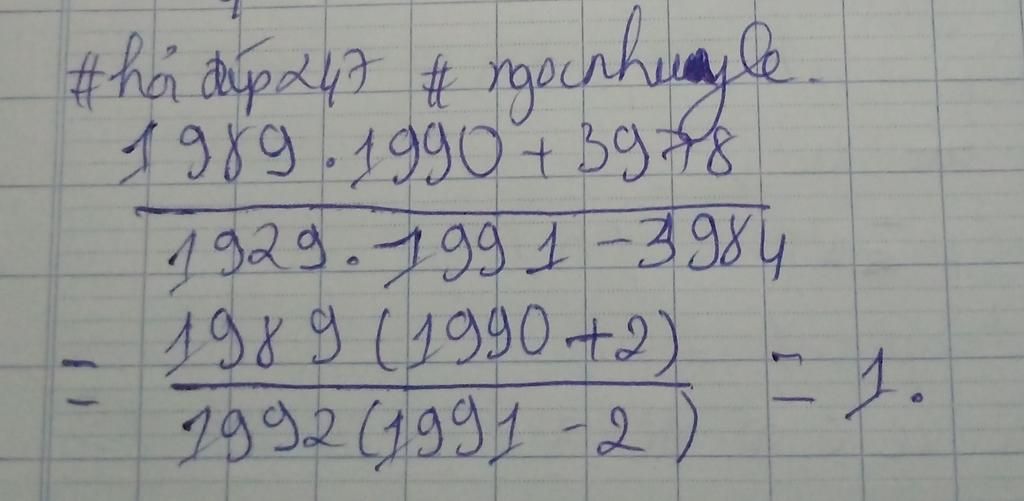 #hỏi đáp247 # ngocnhuyle.
1989.1990+3978
1929.1991-3984
= 1989(1990+2) = 1.
1992(1991-2)